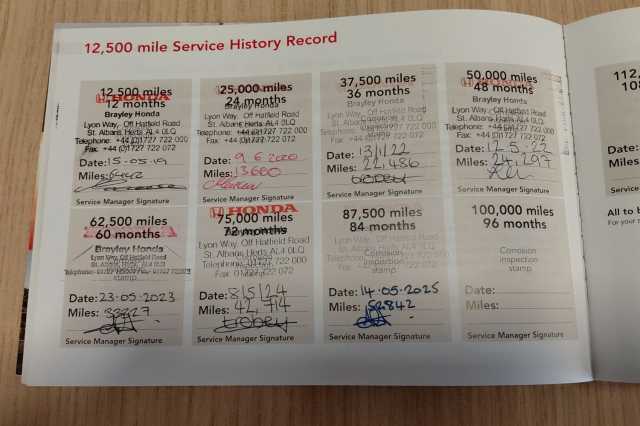 12,500 mile Service History Record
12,500 miles
HONDA
12 months
Brayley Honda
Lyon Way, Off Hatfield Road
St. Albans, Herts, AL4 0LQ
Telephone: +44 (0)1727 722 000
Fax: +44 (0)1727 722 072
Date: 15-05-19
Miles:
Service Manager Signature
25,000 miles
HONDA
24 months
Brayley Honda
Lyon Way, Off Hatfield Road
St. Albans, Herts, AL4 0LQ
Telephone: +44 (0)1727 722 000
Fax: +44 (0)1727 722 072
Date: 9 6 2020
Miles: 13600
Service Manager Signature
37,500 miles
36 months
Brayley Honda
Lyon Way, Off Hatfield Road
St. Albans, Herts, AL4 0LQ
Date: 13/1/22
Miles: 22,486
Service Manager Signature
50,000 miles
HONDA
48 months
Brayley Honda
Lyon Way, Off Hatfield Road
St. Albans, Herts, AL4 0LQ
Telephone: +44 (0)1727 722 000
Fax: +44 (0)1727 722 072
Date: 12.5.22
Miles: 24,297
Service Manager Signature
62,500 miles
60 months
Brayley Honda
Lyon Way, Off Hatfield Road
St. Albans, Herts, AL4 0LQ
Date: 23-05-2023
Miles: 33327
Service Manager Signature
HONDA
75,000 miles
72 months
Lyon Way, Off Hatfield Road
St. Albans, Herts, AL4 0LQ
Date: 8/5/24
Miles: 42,714
Service Manager Signature
87,500 miles
84 months
Corrosion
inspection
stamp
Date: 14-05-2025
Miles: 52842
Service Manager Signature
100,000 miles
96 months
Corrosion
inspection
stamp
Date:
Miles:
Service Manager Signature
112,
108
All to b
For your